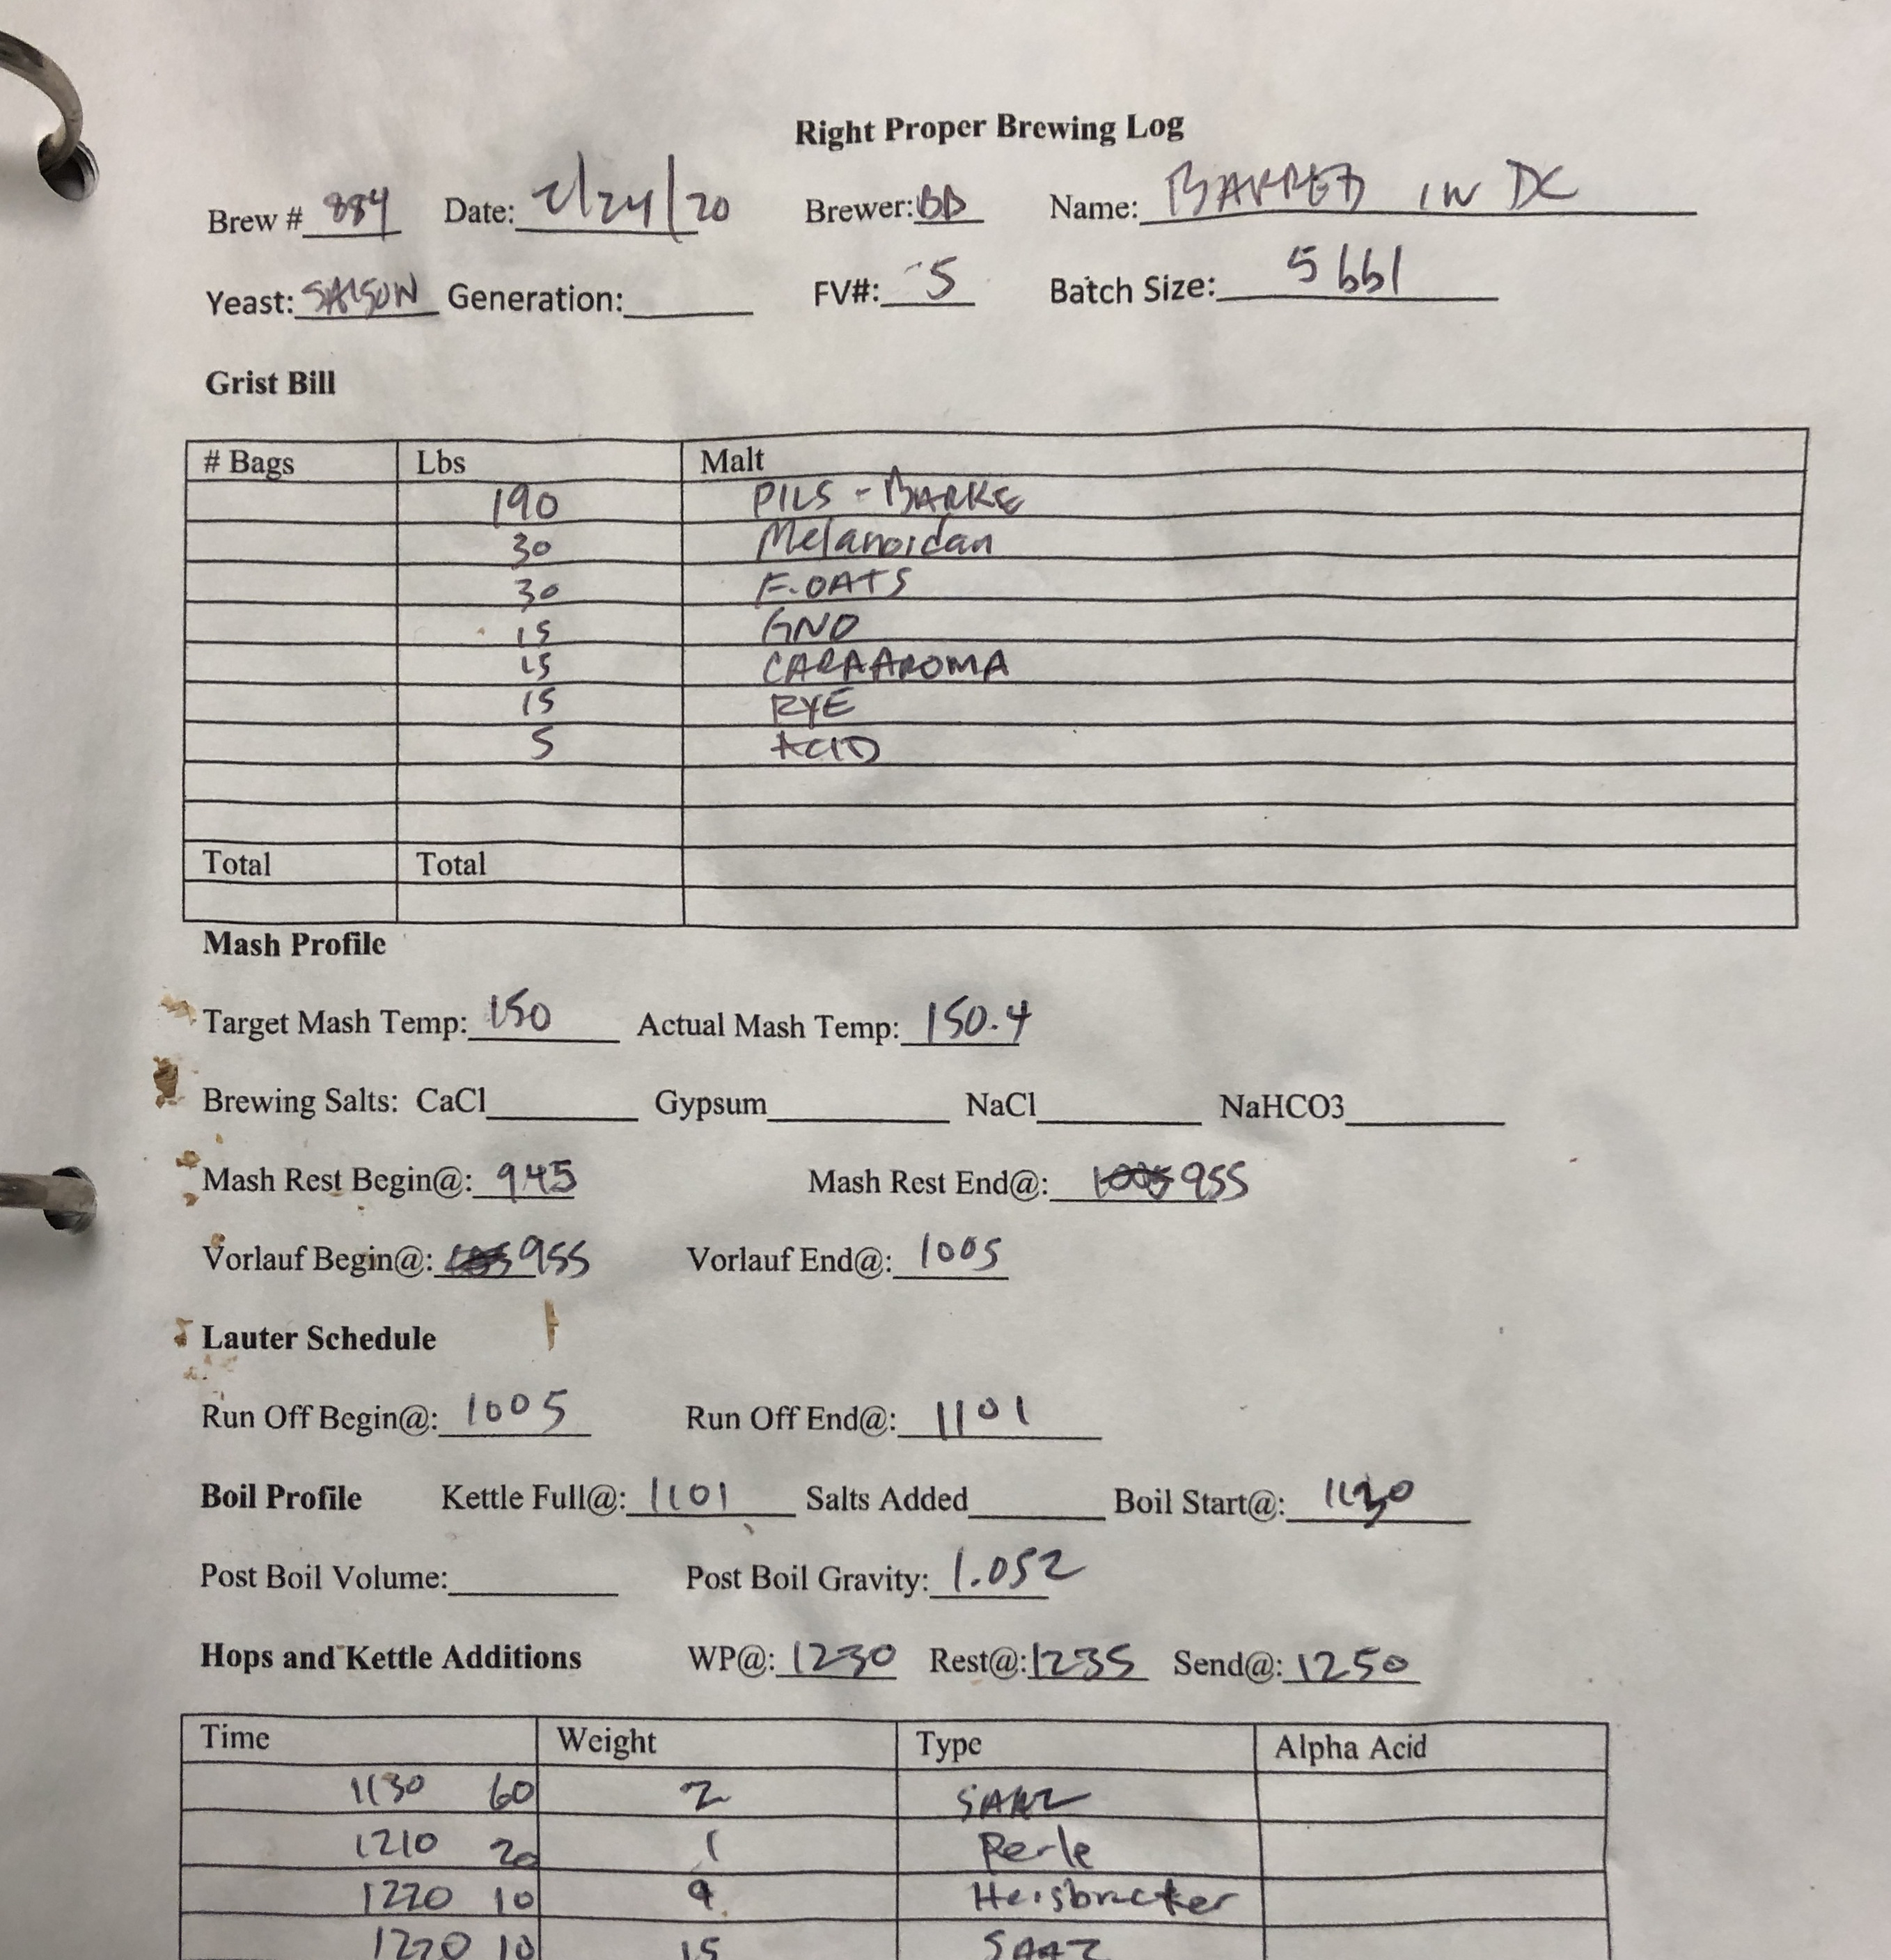 Right Proper Brewing Log
Brew # 884 Date: 2/24/20 Brewer: BD Name: BARRED IN DC
Yeast: SAISON Generation: FV#: 5 Batch Size: 5 bbl
Grist Bill
# Bags Lbs Malt
190 PILS - BARKE
30 Melanoidan
30 F. OATS
15 GNO
15 CARAAROMA
15 RYE
5 ACID
Total Total
Mash Profile
Target Mash Temp: 150 Actual Mash Temp: 150.4
Brewing Salts: CaCl Gypsum NaCl NaHCO3
Mash Rest Begin@: 945 Mash Rest End@: 1005 955
Vorlauf Begin@: 955 Vorlauf End@: 1005
Lauter Schedule
Run Off Begin@: 1005 Run Off End@: 1101
Boil Profile Kettle Full@: 1101 Salts Added Boil Start@: 1130
Post Boil Volume: Post Boil Gravity: 1.052
Hops and Kettle Additions WP@: 1230 Rest@: 1235 Send@: 1250
Time Weight Type Alpha Acid
1130 60 2 SAAZ
1210 20 1 Perle
1220 10 9 Heisbrucker
1220 10 15 SAAZ